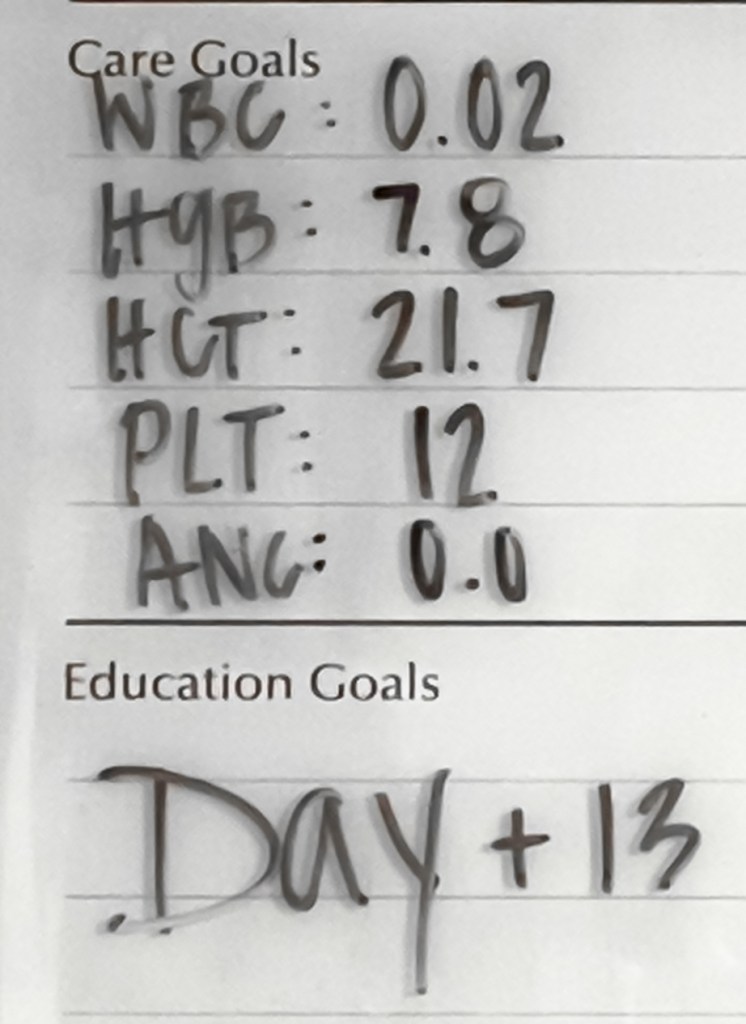 Care Goals
WBC: 0.02
HgB: 7.8
HCT: 21.7
PLT: 12
ANC: 0.0
Education Goals
Day +13